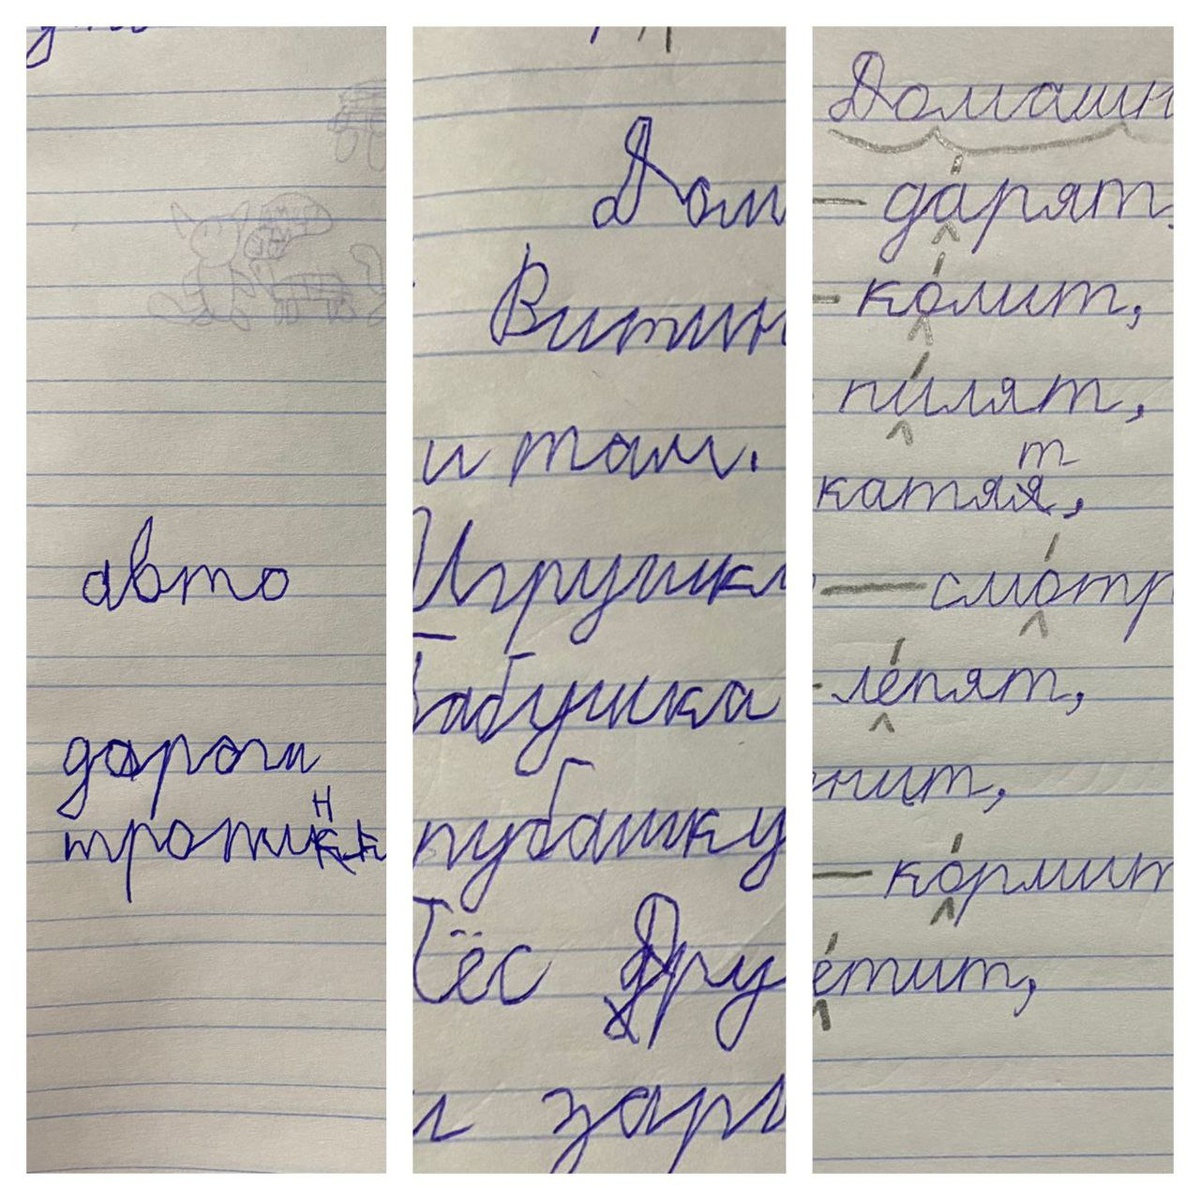 авто
дороги
Дом
Витин
и там.
Игрушк
Бабушка
рубашку
Пёс Дру
и зар
Домашн
— дарят,
- колит,
пилят,
т
катяя,
— смотр
- лепят,
нит,
— кормит
етит,